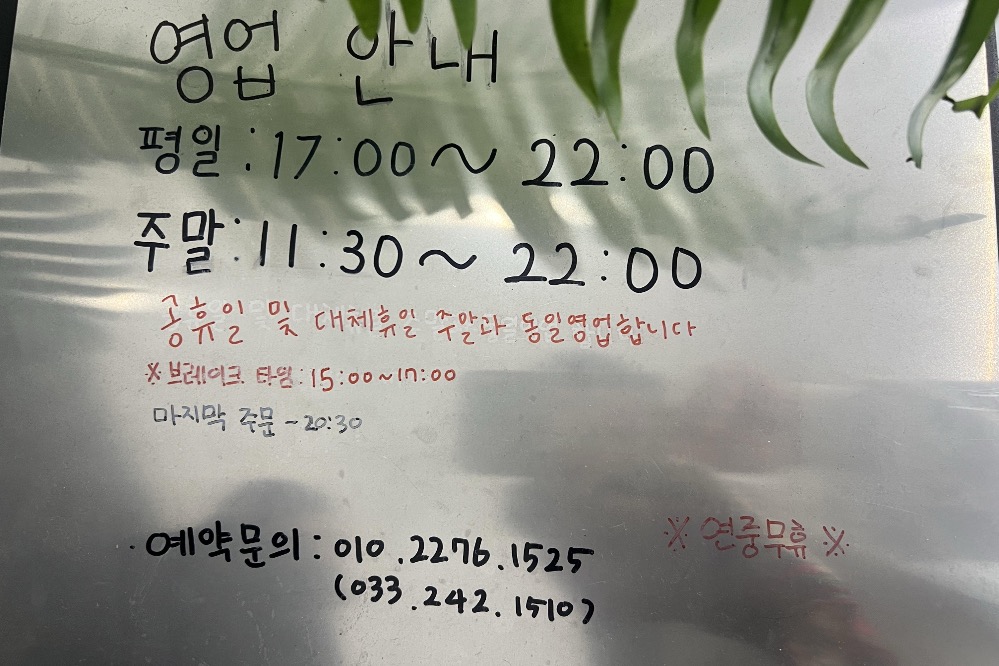 영업 안내
평일:17:00~22:00
주말:11:30~22:00
공휴일 및 대체휴일 주말과 동일영업합니다
※브레이크 타임:15:00~17:00
마지막 주문-20:30
·예약문의:010.2276.1525
(033.242.1510)
※연중무휴※